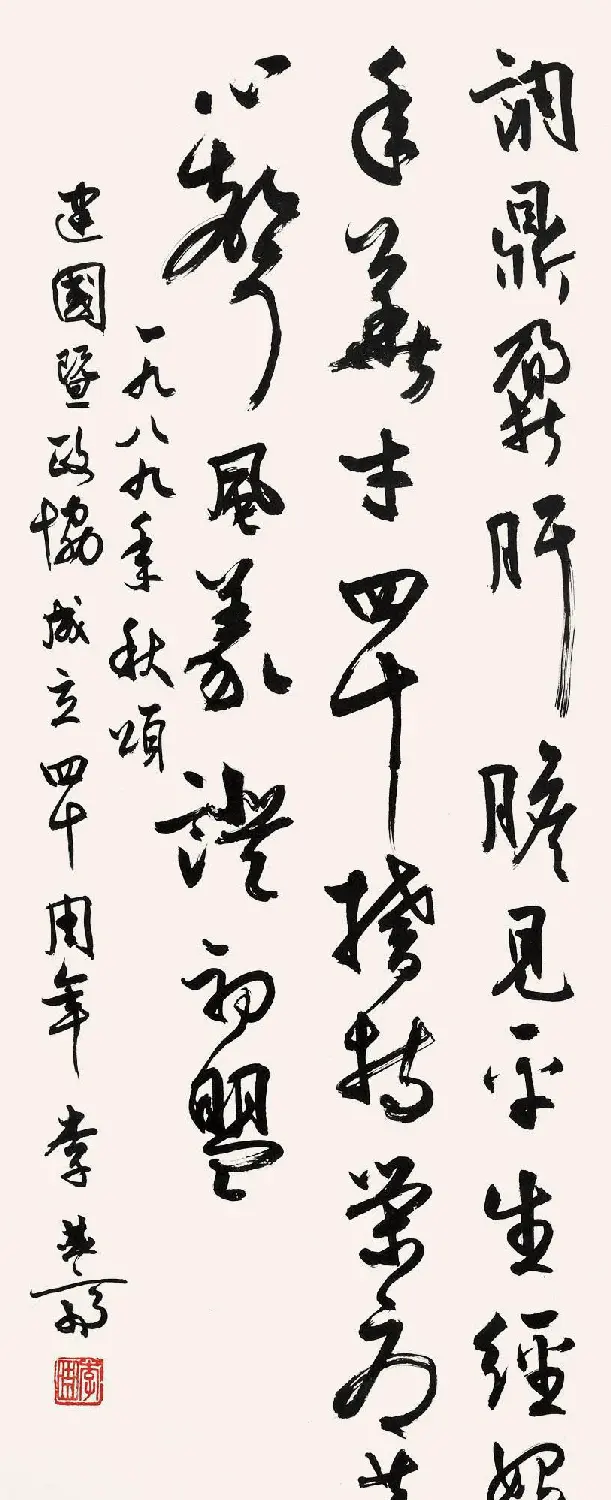 調鼎鼐肝膽見平生經
年華才四十持榮
心聲風義證初盟
一九八九年秋頌
建國暨政協成立四十周年 李